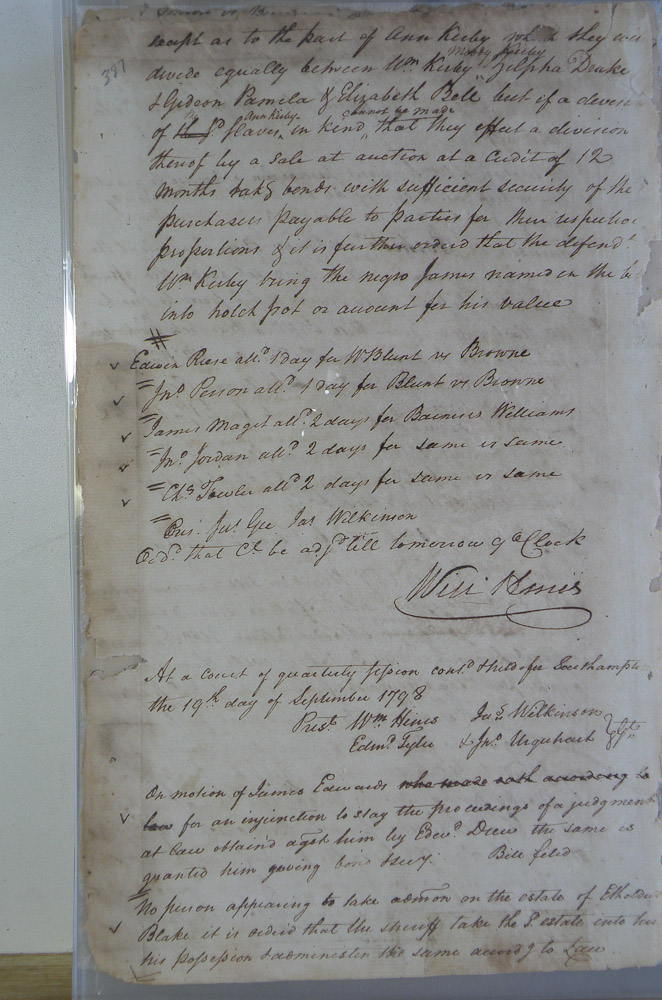 387
except as to the part of Ann Kirby wh they
divide equally between Wm Kirby Moody Kirby Zilpha Drake
& Gideon Pamela & Elizabeth Bell but if a
of Ann Kirby Sd Slaves in kind cannot be made that they effect a division
thereof by a sale at auction at a Credit of 12
months takg bonds with sufficient security of the
purchasers payable to parties for their respective
proportions & it is further ordered that the defendt
Wm Kirby bring the negro James named in the
into hotch pot or account for his value
Edwin Reese alld 1 day for W Blunt vs Browne
Jno Person alld 1 day for Blunt vs Browne
James Maget alld 2 days for Barnes vs Williams
Jno Jordan alld 2 days for same vs same
Chs Fowler alld 2 days for same vs same
Jas Gee Jas Wilkinson
Ordd that Ct be adjd till tomorrow 9 oClock
Will Hines
At a Court of quarterly session contd & held for Southampto
the 19th day of September 1798
Prest Wm Hines Jas Wilkinson
Edmd Tyler & Jno Urquhart Gts
On motion of James Edwards who made oath according to
law for an injunction to stay the proceedings of a judgment
at law obtain'd agst him by Edwd Drew the same is
granted him giving bond & secy. Bill filed
No person appearing to take admon on the estate of
Blake it is orderd that the sheriff take the Sd estate into his
his possession & administer the same accordg to Law